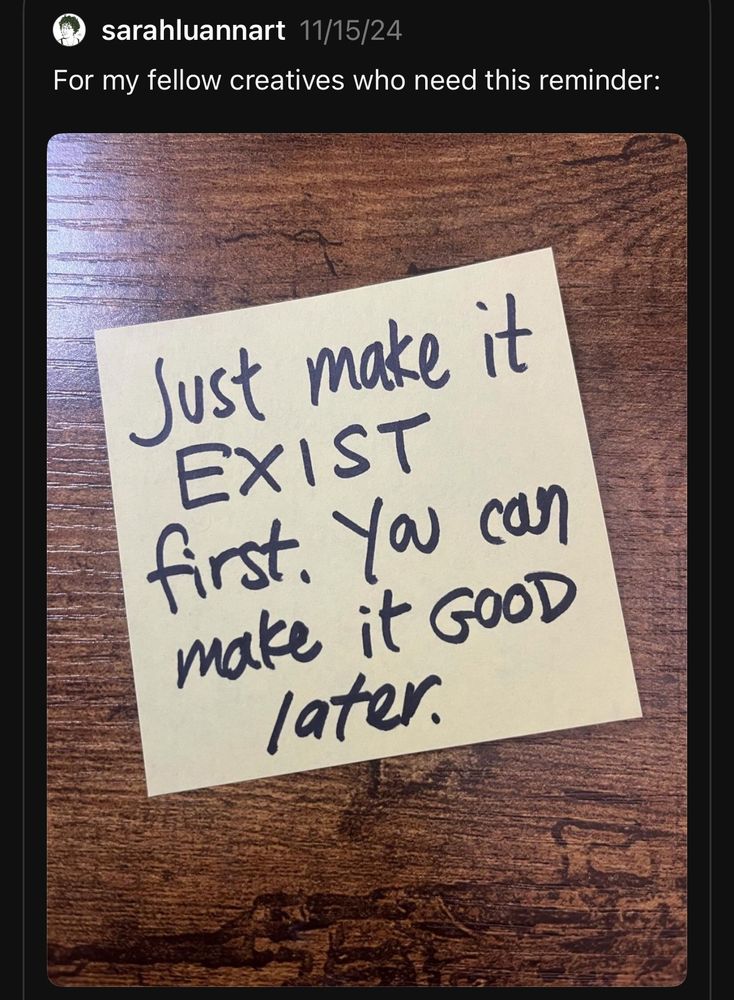 sarahluannart 11/15/24
For my fellow creatives who need this reminder:
Just make it
EXIST
first. You can
make it GOOD
later.